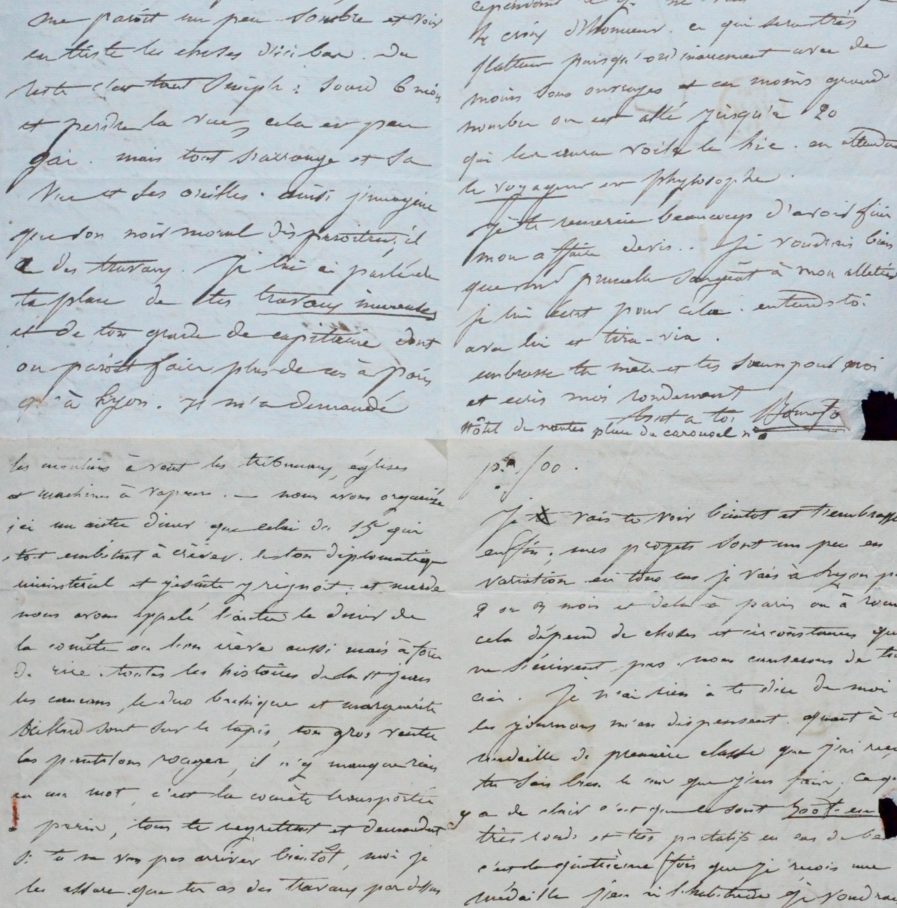 me paroit un peu sombre et voir
en triste les choses d'ici bas. du
reste c'est tout simple : sourd 6 mois
et perdre la vue, cela est peu
gai. mais tout s'arrange et sa
vue et ses oreilles. ainsi j'imagine
que son noir moral disparoitra, il
a des travaux. Je lui ai parlé de
ta place de tes travaux
et de ton grade de capitaine dont
on paroit faire plus de cas à paris
qu'à Lyon. il m'a demandé
cependant
la croix d'honneur. ce qui seroit très
flatteur puisqu'ordinairement avec de
moins bons ouvrages et en moins grand
nombre on est allé jusqu'à 20
qui les aura voila le hic. en attendant
le voyageur est phylosophe.
Je te remercie beaucoup d'avoir fini
mon affaire devis.. Je voudrois bien
que prunelle à mon
je lui écris pour cela. entends toi
avec lui et
embrasse ta mère et tes soeurs pour moi
et ecris moi rondement
tout a toi
Hôtel de nantes place du carousel n°
les moulins à vent les tribunaux, églises
et machines à vapeurs. — nous avons organisé
ici un autre diner que celui du 15 qui
étoit embêtant à crêver. le ton diplomatique
ministériel et jésuite y règnoit. et merde
nous avons appelé l'autre le diner de
la comète on l'on crève aussi mais à force
de rire. toutes les histoires de
les cancans, le duo bachique et marguerite
sont sur le tapis, ton gros ventre
les pantalons rouges, il n'y manque rien
en un mot, c'est la comète transportée
à paris, tous te regrettent et demandent
si tu ne vas pas arriver bientôt, moi je
les assure que tu as des travaux par dessus
500.
Je vais te voir bientot et t'embrasser
enfin. mes projets sont un peu en
variation en tous cas je vais à Lyon
2 ou 3 mois et de là à paris ou à rome
cela dépend de choses et circonstances qui
ne s'écrivent pas. nous causerons de tout
ceci. Je n'ai rien à te dire de moi
les journaux m'en dispensent. quant à la
médaille de première classe que j'ai reçue
tu sais bien le cas que j'en fais, ce qu'il
y a de clair c'est que ce sont
très ronds et très portatifs en cas de
c'est la quatrième fois que je reçois une
médaille j'en ai l'habitude je voudrais